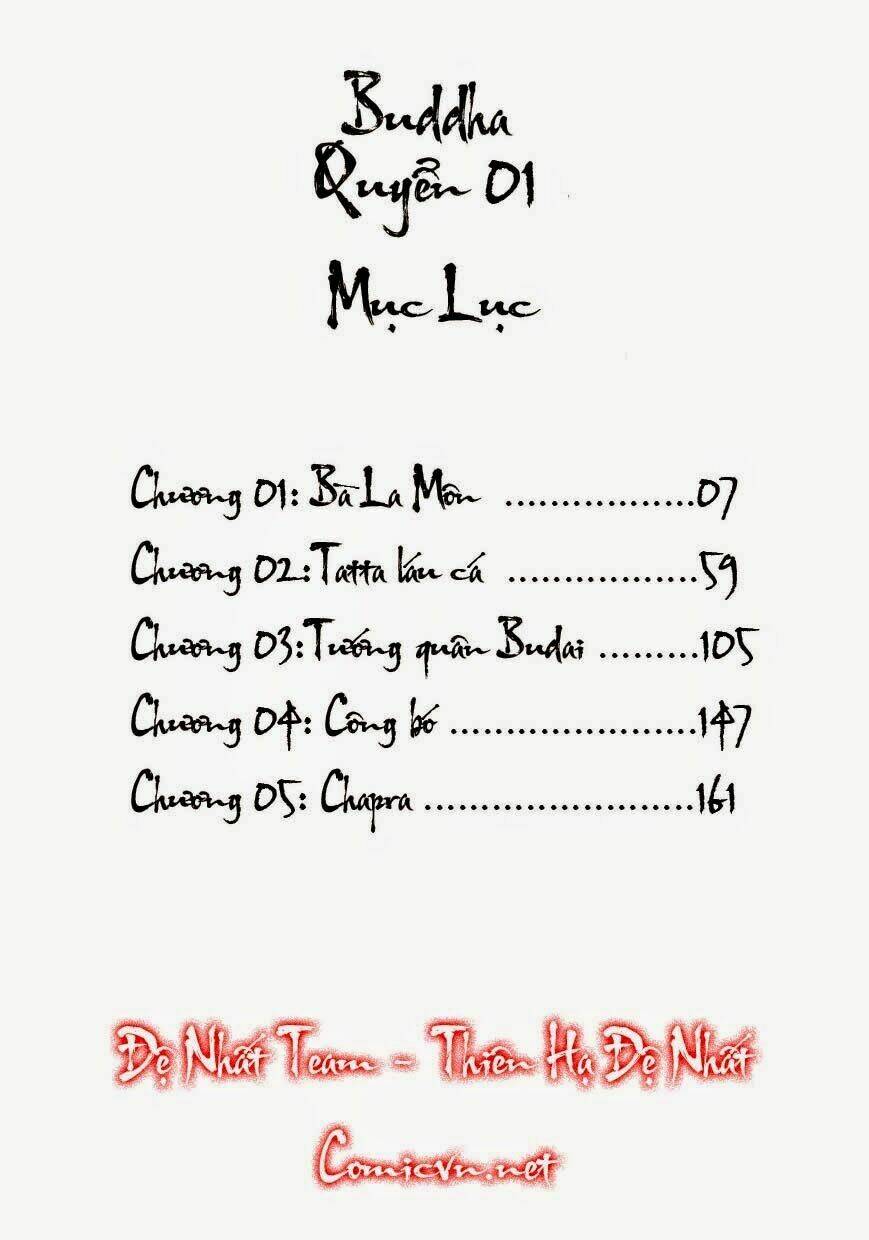 Buddha
Quyển 01
Mục Lục
Chương 01: Bà La Môn .................07
Chương 02:Tatta láu cá .................59
Chương 03:Tướng quân Budai .........105
Chương 04: Công bố ......................147
Chương 05: Chapra ........................161
Đệ Nhất Team - Thiên Hạ Đệ Nhất
Comicvn.net